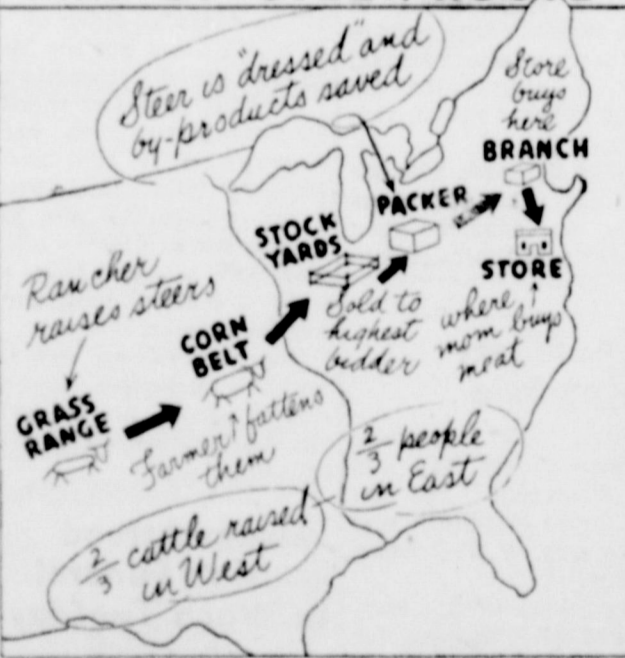 Steer is "dressed" and
by-products saved
Store
buys
here
BRANCH
PACKER
STOCK
YARDS
STORE
Rancher
raises steers
Sold to
highest
bidder
where
mom buys
meat
CORN
BELT
GRASS
RANGE
Farmer fattens
them
2/3 people
in East
2/3 cattle raised
in West